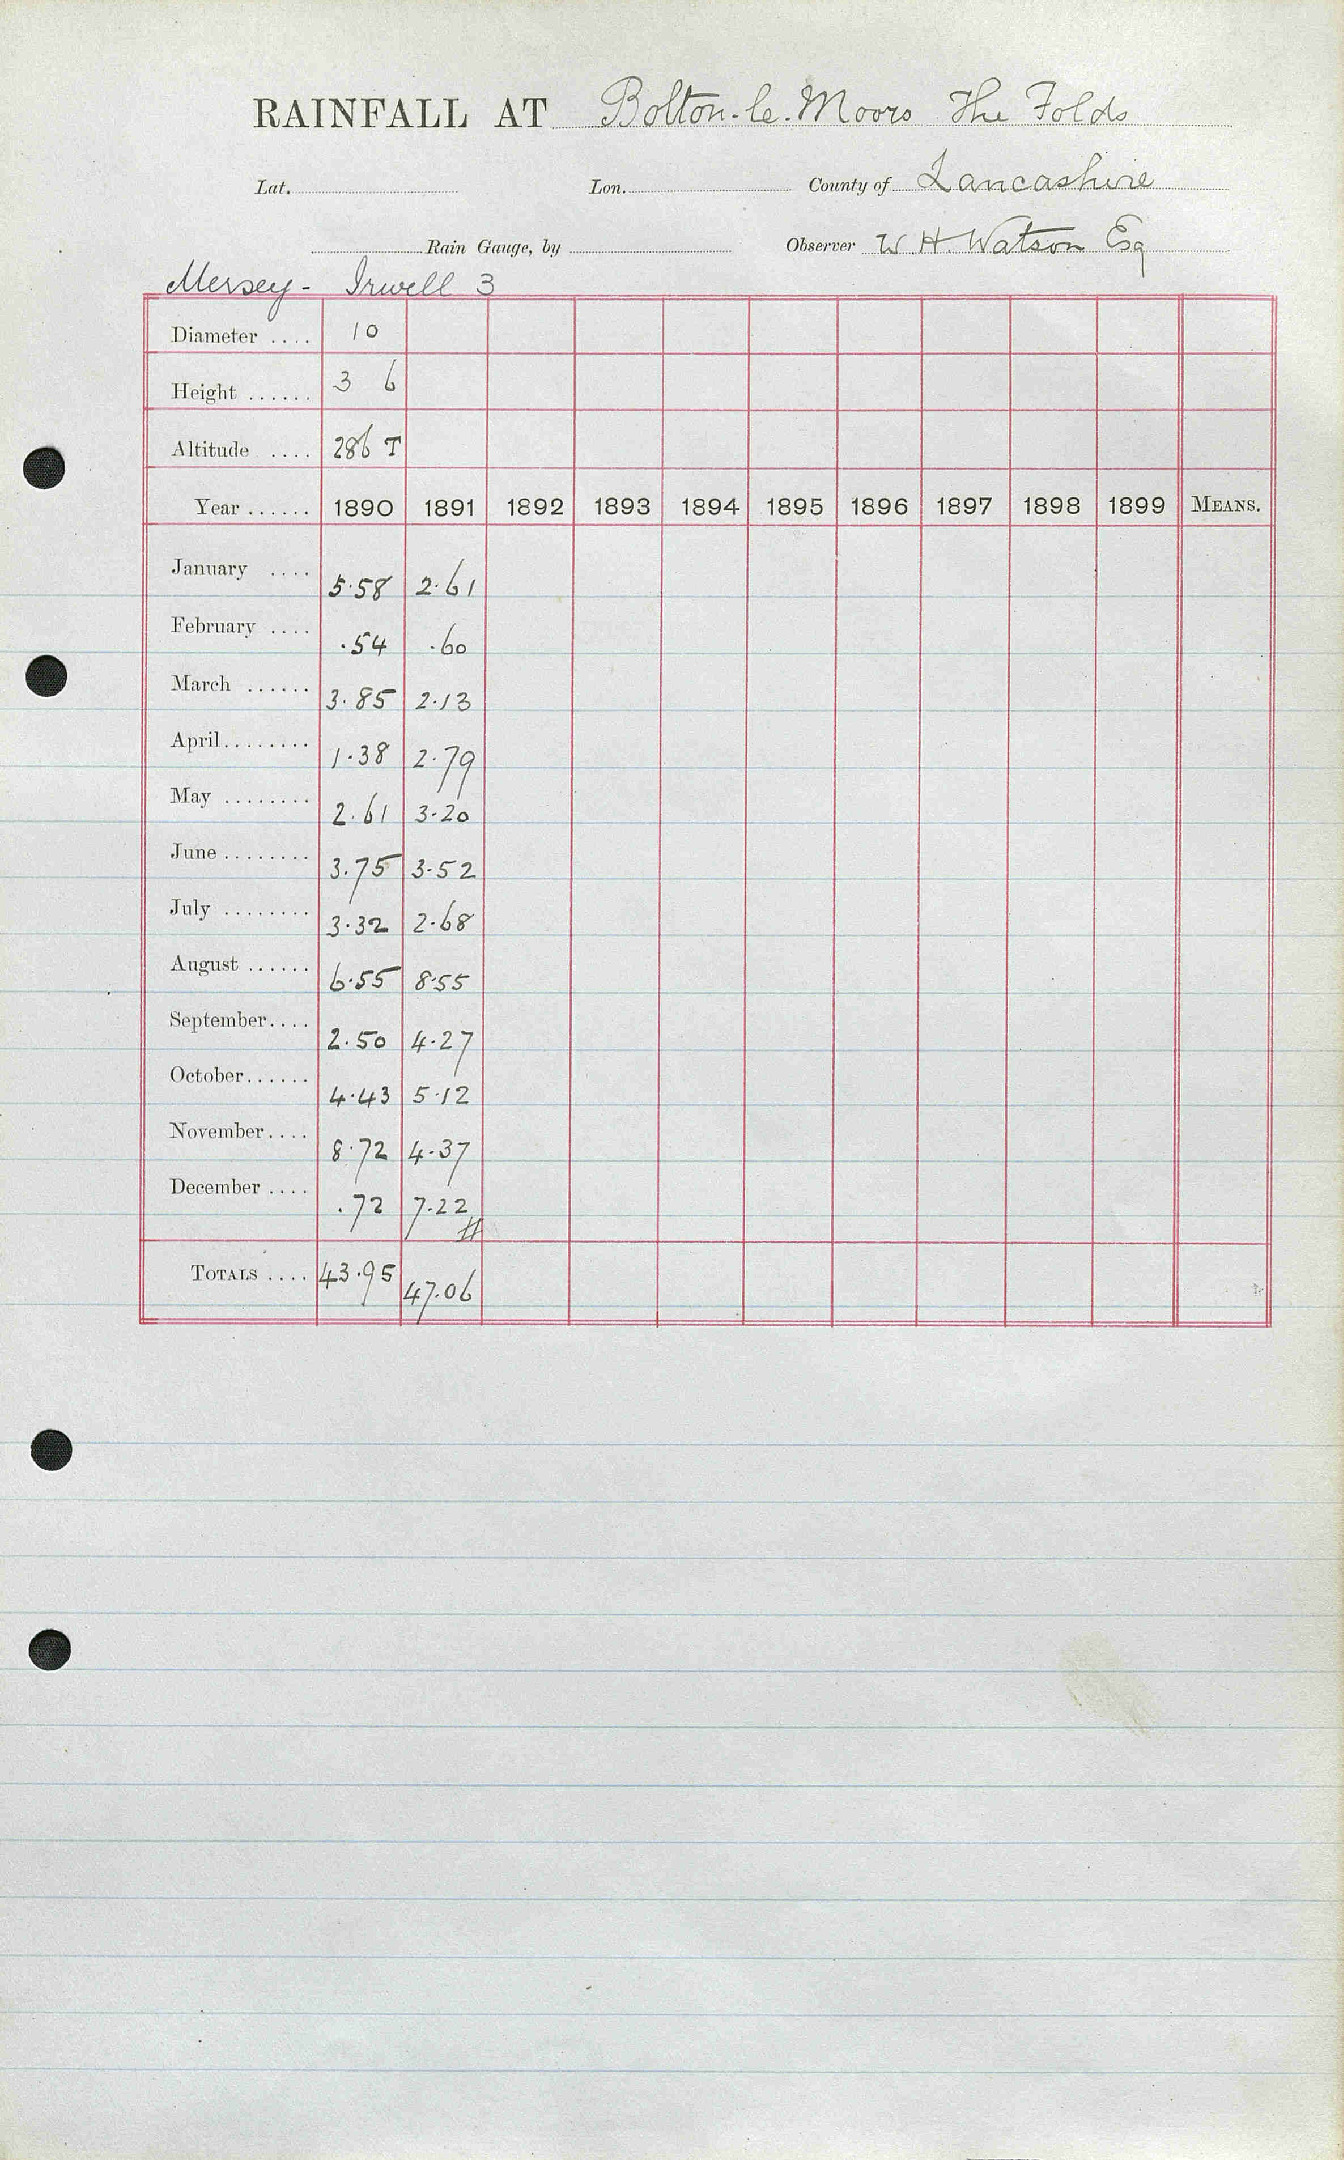 RAINFALL AT Bolton-le-Moors The Folds
Lat. Lon. County of Lancashire
Rain Gauge, by Observer W. H. Watson Esq
Mersey - Irwell 3
Diameter .... 10
Height ...... 3 6
Altitude .... 286 T
Year ...... 1890 1891 1892 1893 1894 1895 1896 1897 1898 1899 MEANS.
January .... 5.58 2.61
February .... .54 .60
March ...... 3.85 2.13
April........ 1.38 2.79
May ........ 2.61 3.20
June ........ 3.75 3.52
July ........ 3.32 2.68
August ...... 6.55 8.55
September.... 2.50 4.27
October...... 4.43 5.12
November.... 8.72 4.37
December .... .72 7.22
TOTALS .... 43.95 47.06